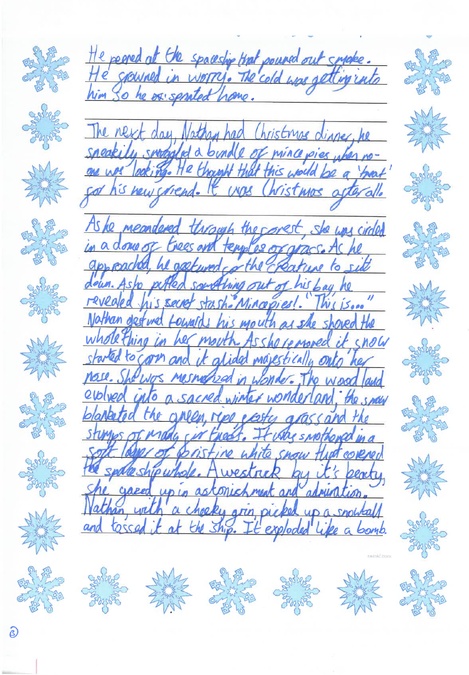 He peered at the spaceship that poured out smoke.
He growned in worry. The cold was getting into
him so he as sprinted home.
The next day, Nathan had Christmas dinner, he
sneakily smuggled a bundle of mince pies when no-
one was looking. He thought that this would be a 'treat'
for his new friend. It was Christmas after all.
As he meandered through the forest, she was circled
in a dome of trees and temples of grass. As he
approached, he gestured for the creature to sit
down. As he pulled something out of his bag he
revealed his secret stash. Mince pies!. "This is..."
Nathan gestured towards his mouth as she shoved the
whole thing in her mouth. As she removed it, snow
started to form and it glided majestically onto her
nose. She was mesmerized in wonder. The woodland
evolved into a sacred winter wonderland, the snow
blanketed the green, ripe frosty grass and the
stumps of many fir trees. It was smothered in a
soft layer of pristine white snow that covered
the spaceship whole. Awestruck by it's beauty,
she gazed up in astonishment and admiration.
Nathan, with a cheeky grin, picked up a snowball
and tossed it at the ship. It exploded like a bomb.